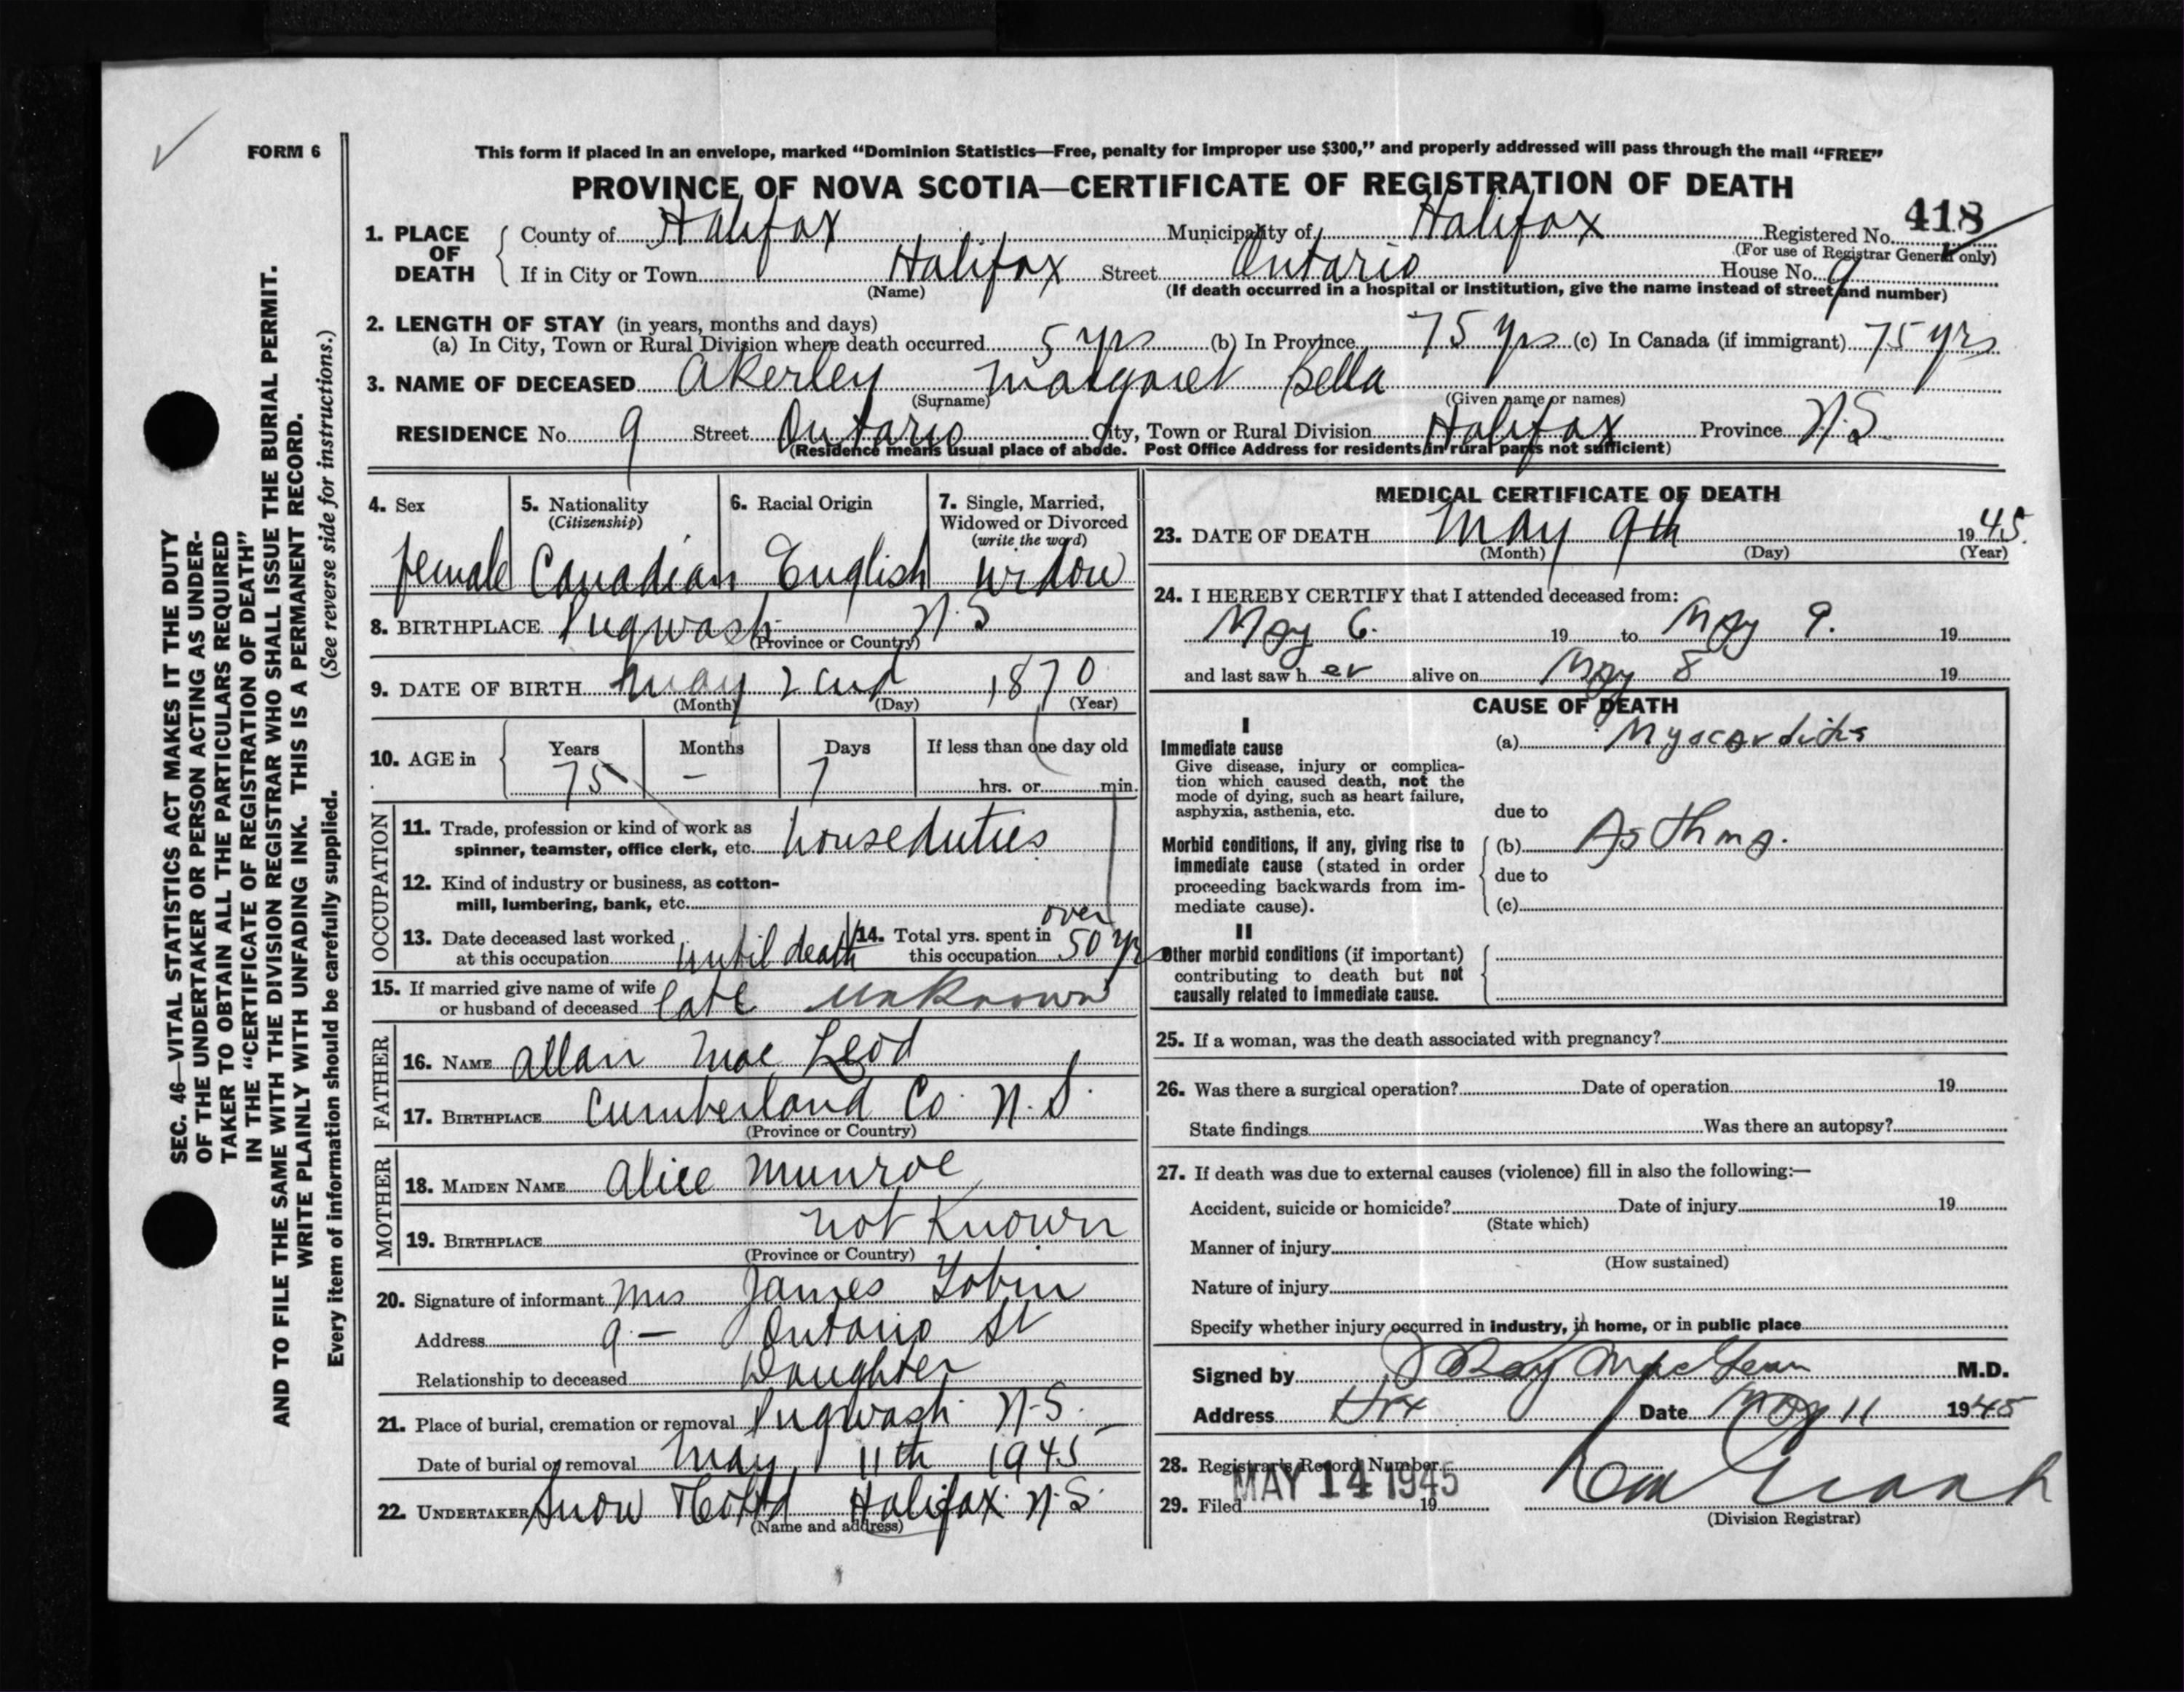 FORM 6
This form if placed in an envelope, marked “Dominion Statistics—Free, penalty for improper use $300,” and properly addressed will pass through the mail “FREE”
PROVINCE OF NOVA SCOTIA—CERTIFICATE OF REGISTRATION OF DEATH
418
1. PLACE OF DEATH { County of Halifax Municipality of Halifax Registered No.
(For use of Registrar General only)
If in City or Town Halifax Street Ontario House No. 9
(Name) (If death occurred in a hospital or institution, give the name instead of street and number)
2. LENGTH OF STAY (in years, months and days)
(a) In City, Town or Rural Division where death occurred 5 yrs (b) In Province 75 yrs (c) In Canada (if immigrant) 75 yrs
3. NAME OF DECEASED Akerley Margaret Bella
(Surname) (Given name or names)
RESIDENCE No. 9 Street Ontario City, Town or Rural Division Halifax Province N.S.
(Residence means usual place of abode. Post Office Address for residents in rural parts not sufficient)
4. Sex
female
5. Nationality
(Citizenship)
Canadian
6. Racial Origin
English
7. Single, Married,
Widowed or Divorced
(write the word)
widow
8. BIRTHPLACE Pugwash N.S
(Province or Country)
9. DATE OF BIRTH May 2cnd 1870
(Month) (Day) (Year)
10. AGE in { Years Months Days If less than one day old
75 – 7 hrs. or min.
OCCUPATION
11. Trade, profession or kind of work as
spinner, teamster, office clerk, etc. houseduties
12. Kind of industry or business, as cotton-
mill, lumbering, bank, etc.
13. Date deceased last worked
at this occupation until death
14. Total yrs. spent in over
this occupation 50 yrs
15. If married give name of wife
or husband of deceased late unknown
FATHER
16. NAME Allan Mac Leod
17. BIRTHPLACE Cumberland Co. N.S.
(Province or Country)
MOTHER
18. MAIDEN NAME Alice Munroe
19. BIRTHPLACE not Known
(Province or Country)
20. Signature of informant Mrs James Tobin
Address 9 – Ontario St
Relationship to deceased Daughter
21. Place of burial, cremation or removal Pugwash N-S.
Date of burial or removal May 11th 1945
22. UNDERTAKER Snow Halifax N.S.
(Name and address)
MEDICAL CERTIFICATE OF DEATH
23. DATE OF DEATH May 9th 1945.
(Month) (Day) (Year)
24. I HEREBY CERTIFY that I attended deceased from:
May 6. 19 to May 9. 19
and last saw her alive on May 8 19
CAUSE OF DEATH
I
Immediate cause
Give disease, injury or complica-
tion which caused death, not the
mode of dying, such as heart failure,
asphyxia, asthenia, etc.
(a) Myocarditis
due to
Morbid conditions, if any, giving rise to
immediate cause (stated in order
proceeding backwards from im-
mediate cause).
(b) Asthma.
due to
(c)
II
Other morbid conditions (if important)
contributing to death but not
causally related to immediate cause.
25. If a woman, was the death associated with pregnancy?
26. Was there a surgical operation? Date of operation 19
State findings Was there an autopsy?
27. If death was due to external causes (violence) fill in also the following:—
Accident, suicide or homicide? Date of injury 19
(State which)
Manner of injury
(How sustained)
Nature of injury
Specify whether injury occurred in industry, in home, or in public place
Signed by M.D.
Address Hfx Date May 11 1945
28. Registrar's Record Number
29. Filed MAY 14 1945 19
(Division Registrar)
SEC. 46—VITAL STATISTICS ACT MAKES IT THE DUTY
OF THE UNDERTAKER OR PERSON ACTING AS UNDER-
TAKER TO OBTAIN ALL THE PARTICULARS REQUIRED
IN THE “CERTIFICATE OF REGISTRATION OF DEATH”
AND TO FILE THE SAME WITH THE DIVISION REGISTRAR WHO SHALL ISSUE THE BURIAL PERMIT.
WRITE PLAINLY WITH UNFADING INK. THIS IS A PERMANENT RECORD.
Every item of information should be carefully supplied. (See reverse side for instructions.)